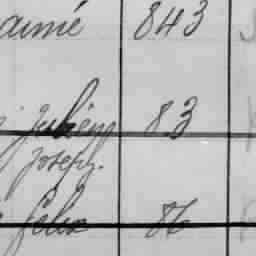 aimé 843
Julien 83
Joseph.
Felix 86